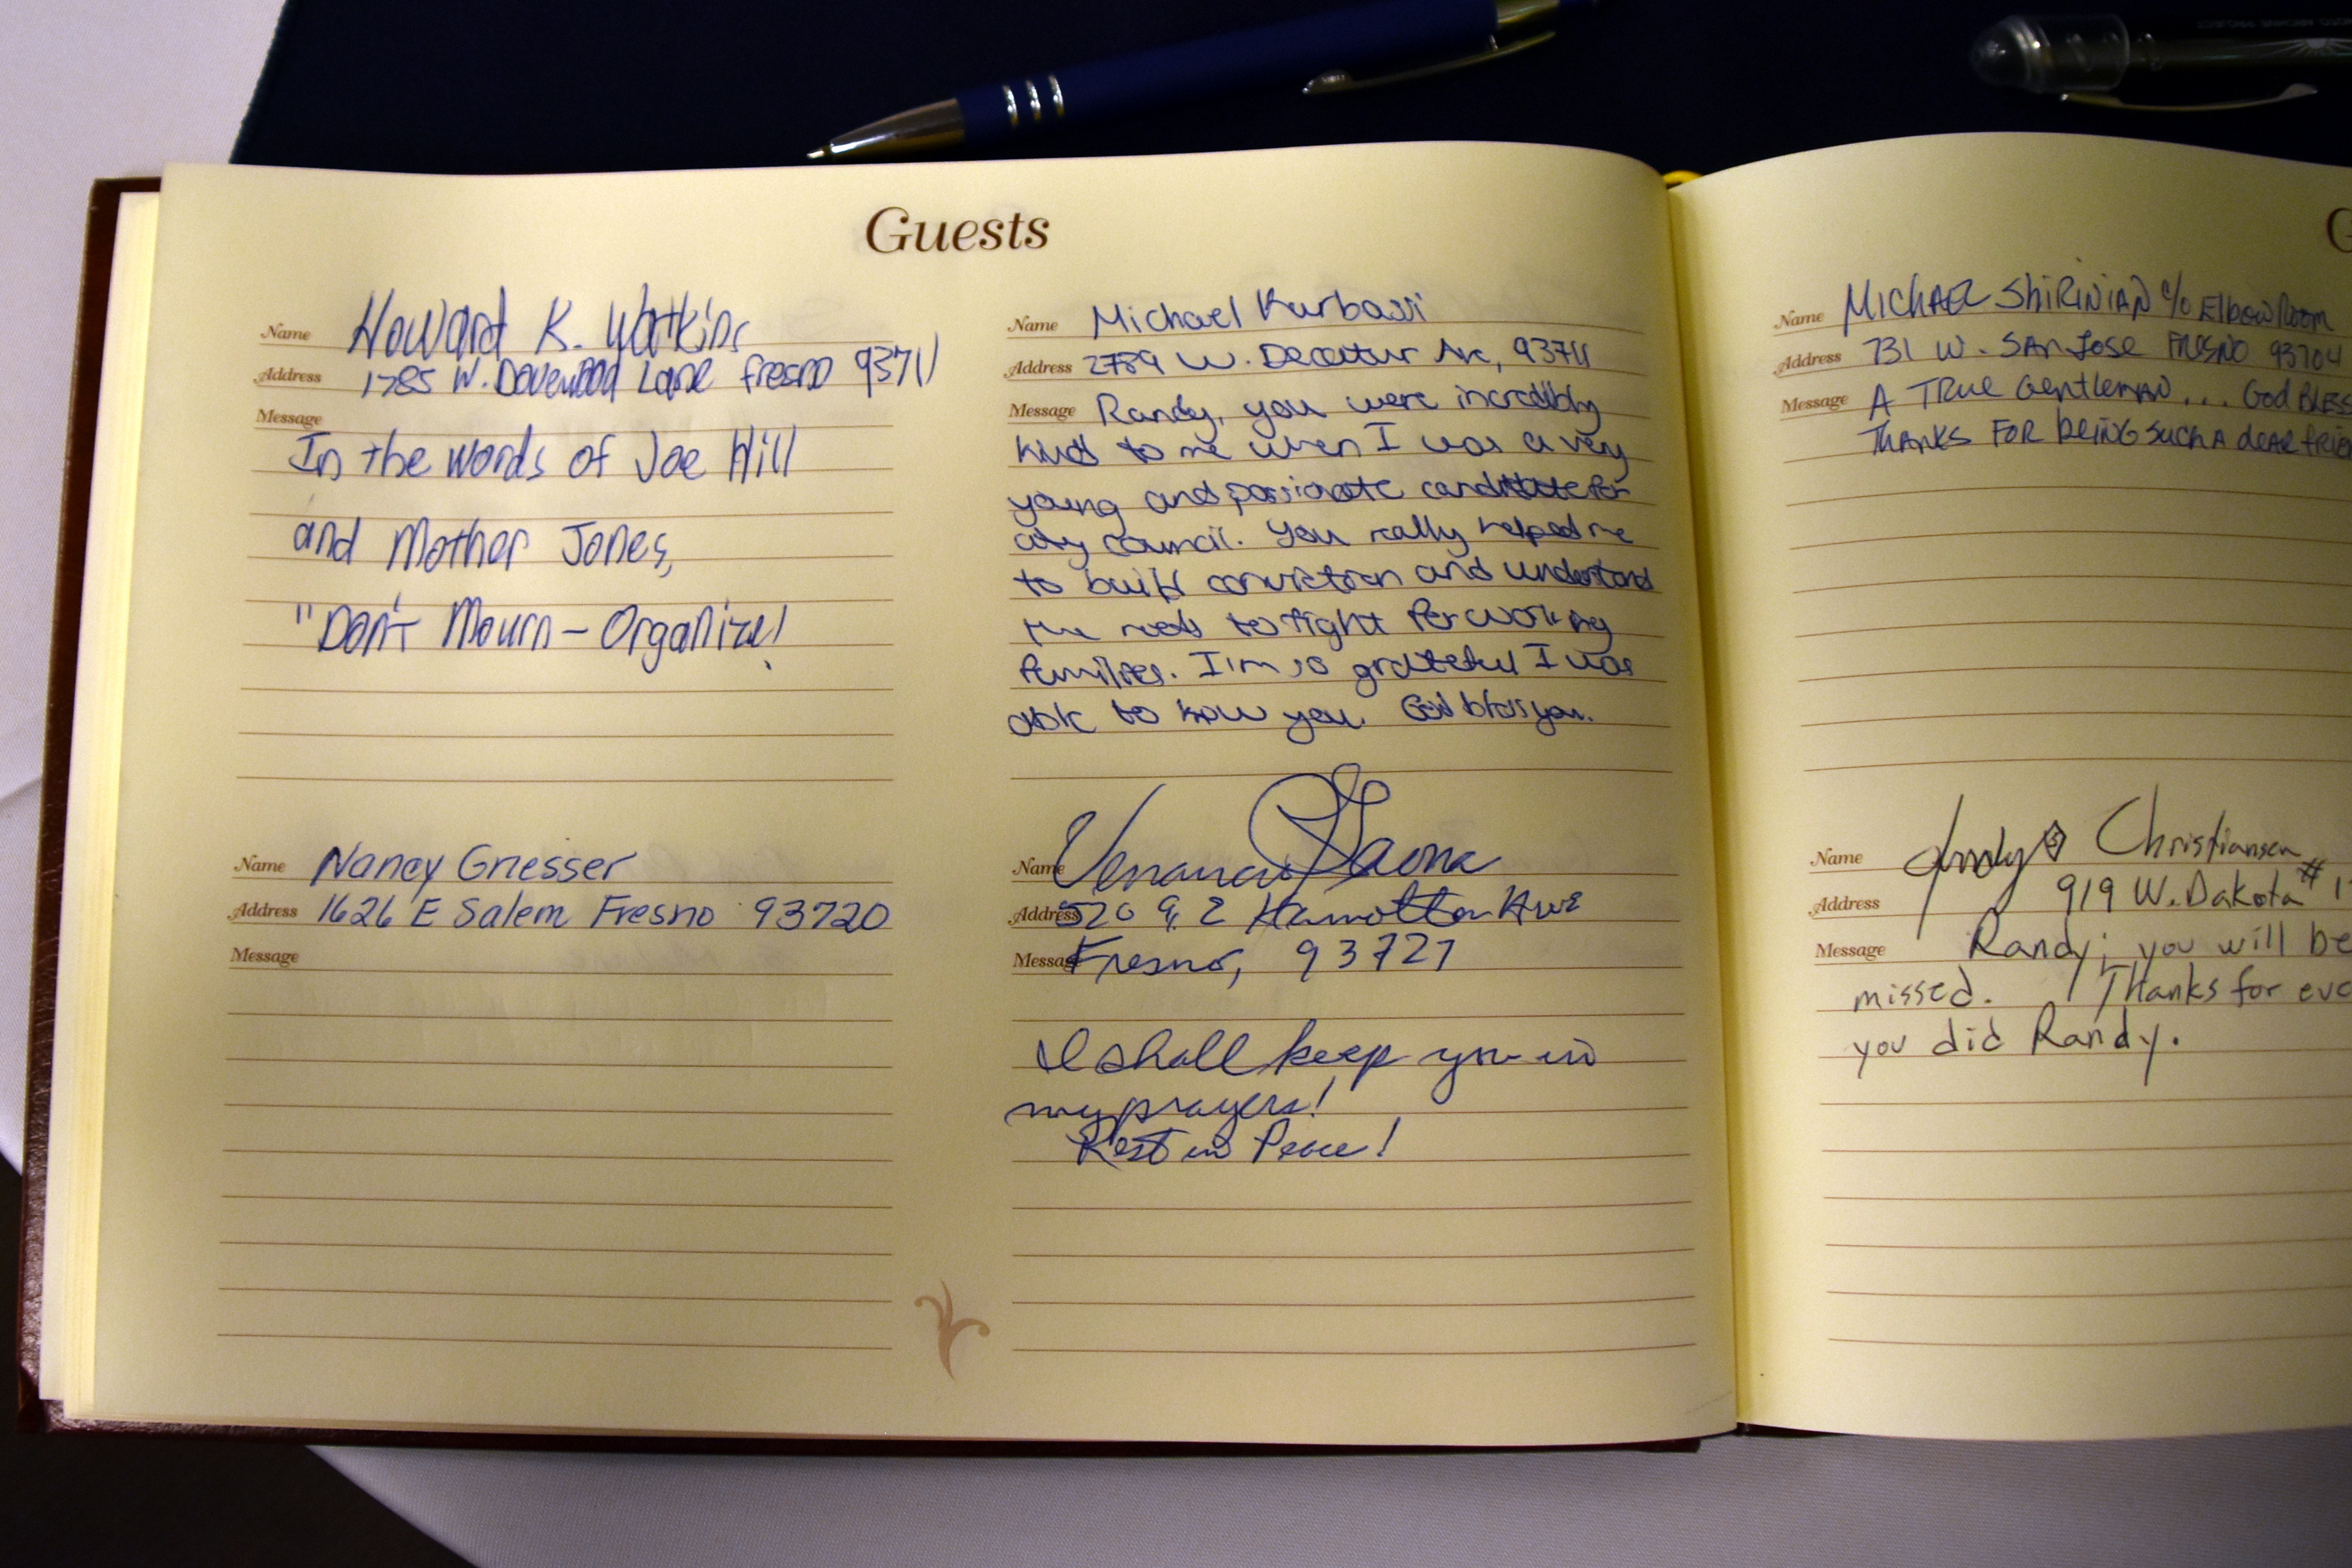 Guests
Name Howard K. Watkins
Address 1785 W. Dovewood Lane Fresno 93711
Message
In the words of Joe Hill
and Mother Jones,
"Don't Mourn - Organize!
Name Nancy Griesser
Address 1626 E Salem Fresno 93720
Message
Name Michael Karbassi
Address 2789 W. Decatur Ave, 93711
Message Randy, you were incredibly
kind to me when I was a very
young and passionate candidate for
city council. You really helped me
to build conviction and understand
the needs to fight for working
families. I'm so grateful I was
able to know you. God bless you.
Name Venancio Gaona
Address E Hamilton Ave
Message Fresno, 93727
I shall keep you in
my prayers!
Rest in Peace!
G
Name MICHAEL SHIRINIAN c/o Elbow Room
Address 731 W. SAN JOSE FRESNO 93704
Message A TRUE GENTLEMAN... God BLESS
THANKS FOR BEING SUCH A dEAR frien
Name Christiansen
Address 919 W. Dakota # 1
Message Randy; you will be
missed. Thanks for eve
you did Randy.